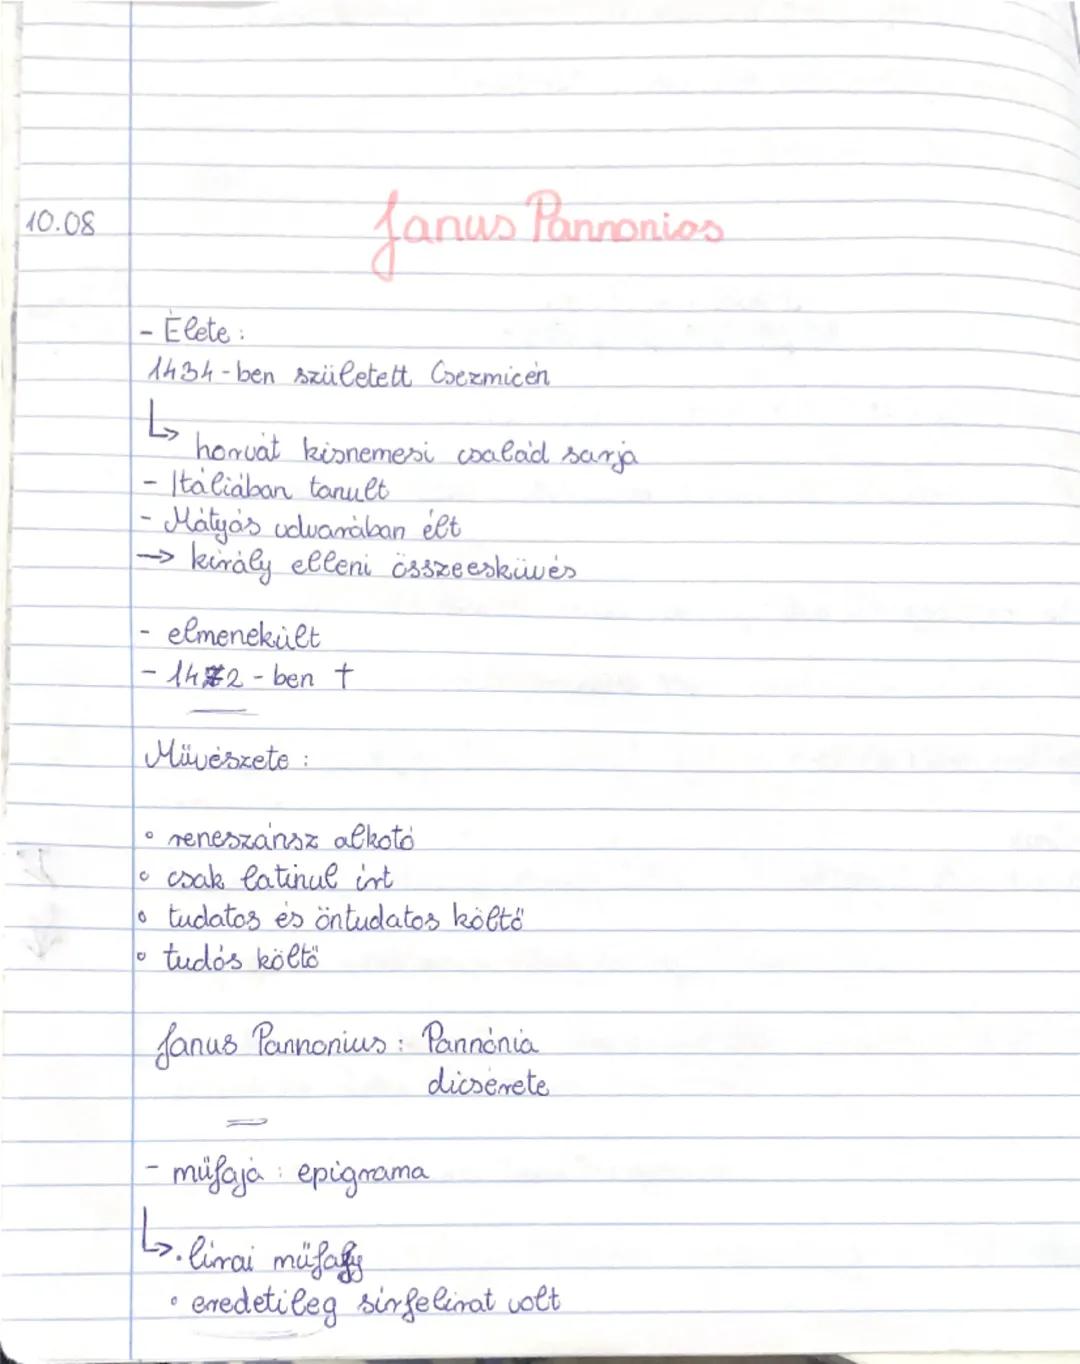 10.08
Janus Pannonios
- Élete:
1434-ben született Csezmicén
↳ horvát kisnemesi család sarja
- Itáliában tanult
- Mátyás udvarában élt
→ király elleni összeesküvés
- elmenekült
- 1472-ben †
Művészete:
• reneszánsz alkotó
• csak latinul írt
• tudatos és öntudatos költő
• tudós költő
Janus Pannonius: Pannónia
dicsérete
- műfaja: epigrama
↳ • lírai műfaj
• eredetileg sírfelirat volt